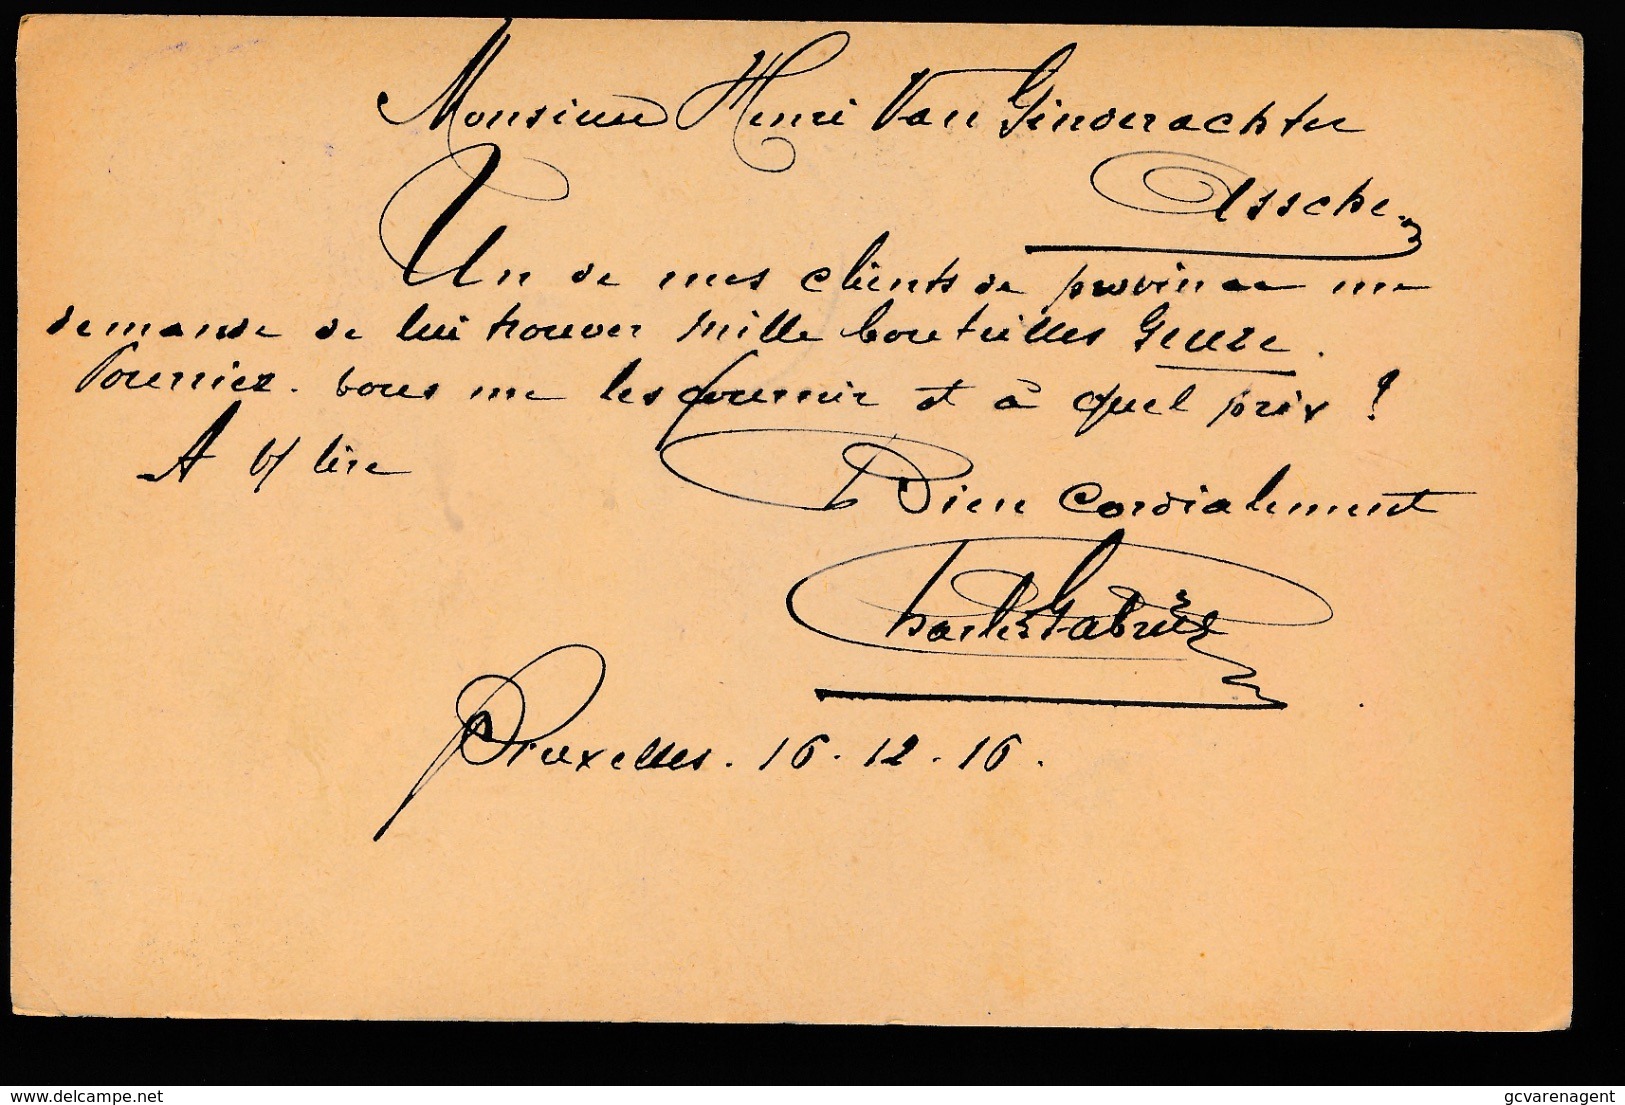 Monsieur Henri Van Ginderachter
Assche.
Un de mes clients de province me
demande de lui trouver mille bouteilles Geuze.
Pourriez-vous me les fournir et à quel prix ?
A v/ lire
Bien Cordialement
Charles Gabriël
Bruxelles. 16.12.16.
delcampe.net
gcvarenagent